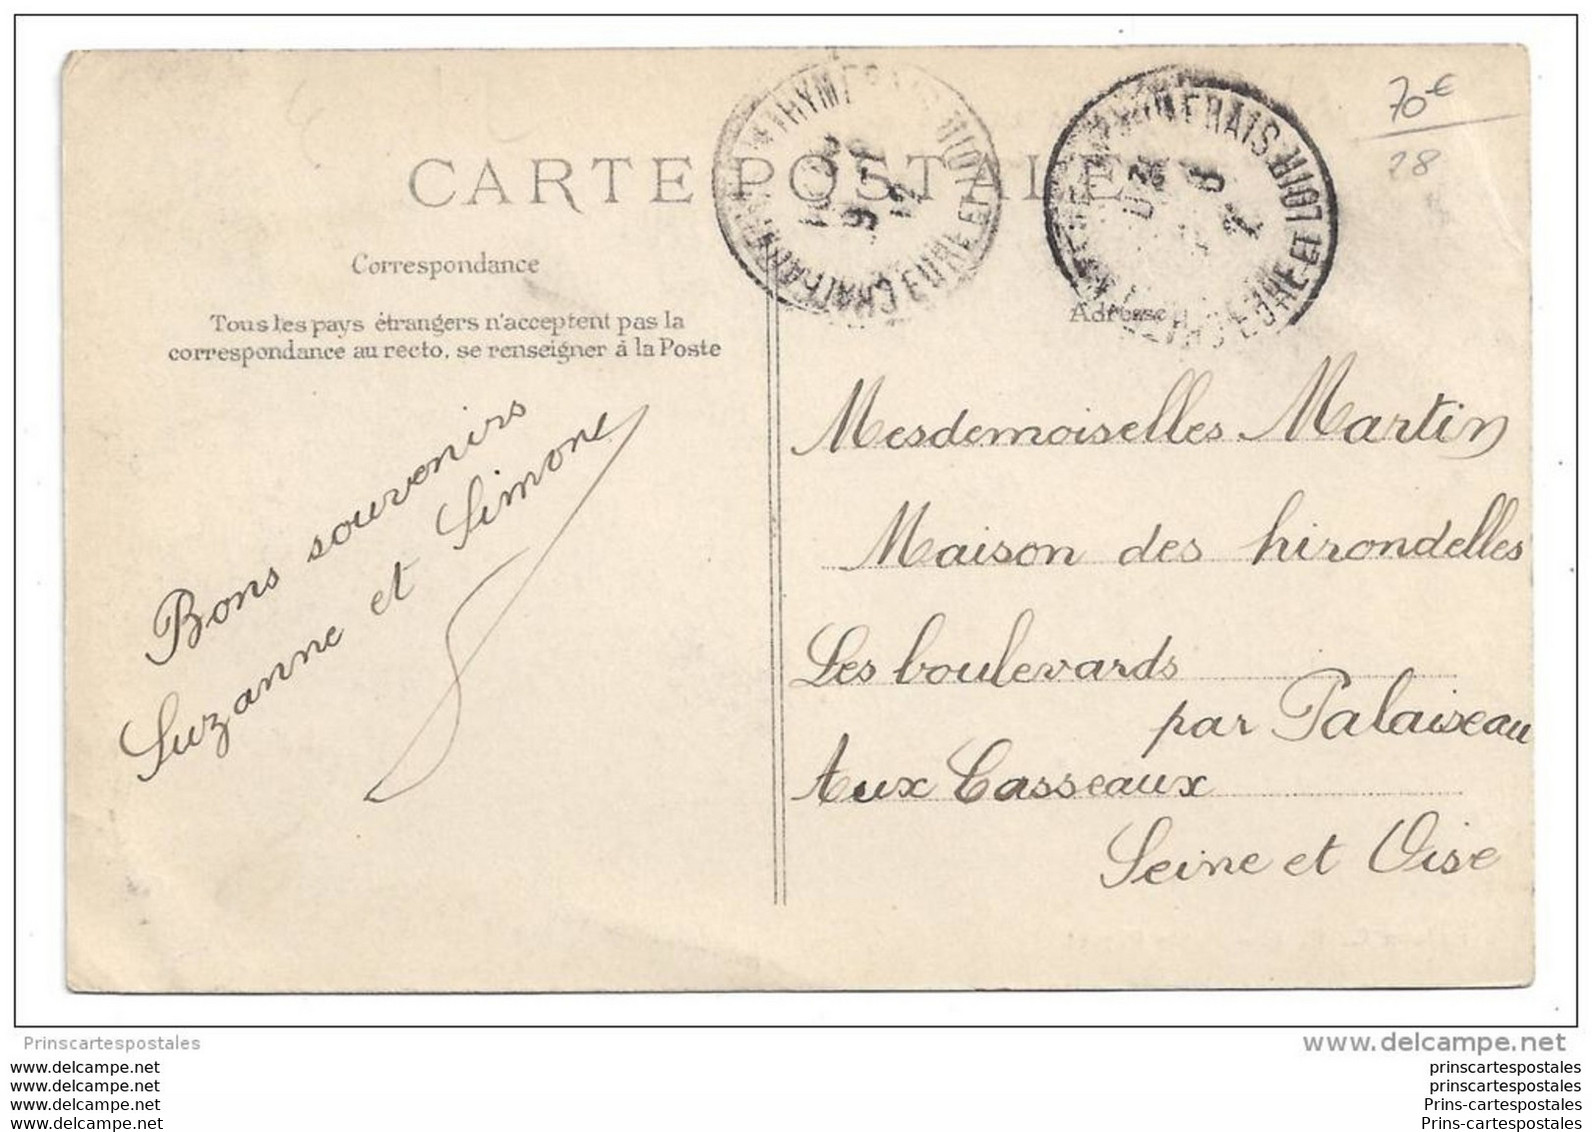 70€
28
CARTE POSTALE
Correspondance
Tous les pays étrangers n'acceptent pas la
correspondance au recto, se renseigner à la Poste
Adresse
Bons souvenirs
Suzanne et Simone
Mesdemoiselles Martin
Maison des hirondelles
Les boulevards
par Palaiseau
Aux Casseaux
Seine et Oise
EURE ET LOIR
EURE ET LOIR
Prinscartespostales
www.delcampe.net
www.delcampe.net
www.delcampe.net
www.delcampe.net
www.delcampe.net
prinscartespostales
prinscartespostales
Prins-cartespostales
Prins-cartespostales